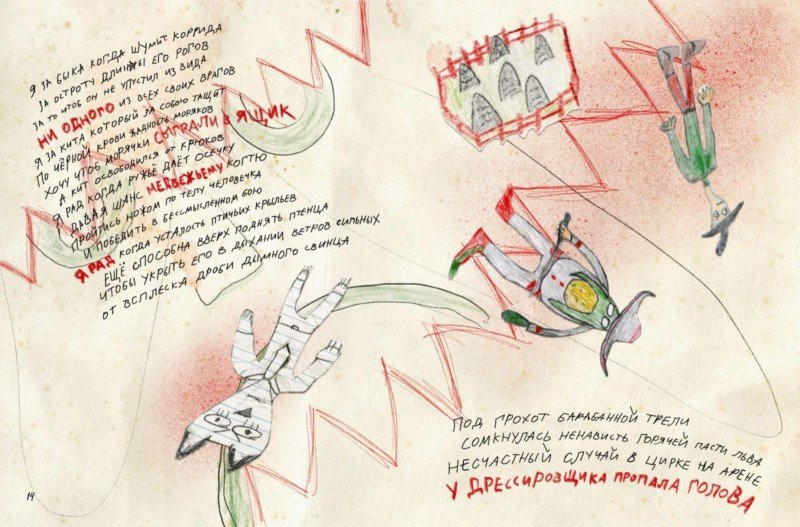 Я ЗА БЫКА КОГДА ШУМИТ КОРРИДА
ЗА ОСТРОТУ ДЛИННЫ ЕГО РОГОВ
ЗА ТО ЧТОБ ОН НЕ УПУСТИЛ ИЗ ВИДА
НИ ОДНОГО ИЗ ВСЕХ СВОИХ ВРАГОВ
Я ЗА КИТА КОТОРЫЙ ЗА СОБОЮ ТАЩИТ
ПО ЧЁРНОЙ КРОВИ ЖАДНОСТЬ МОРЯКОВ
ХОЧУ ЧТОБ МОРЯЧКИ СЫГРАЛИ В ЯЩИК
А КИТ ОСВОБОДИЛСЯ ОТ КРЮКОВ
Я РАД КОГДА РУЖЬЁ ДАЁТ ОСЕЧКУ
ДАВАЯ ШАНС МЕДВЕЖЬЕМУ КОГТЮ
ПРОЙТИСЬ НОЖОМ ПО ТЕЛУ ЧЕЛОВЕЧКА
И ПОБЕДИТЬ В БЕССМЫСЛЕННОМ БОЮ
Я РАД КОГДА УСТАЛОСТЬ ПТИЧЬИХ КРЫЛЬЕВ
ЕЩЁ СПОСОБНА ВВЕРХ ПОДНЯТЬ ПТЕНЦА
ЧТОБЫ УКРЫТЬ ЕГО В ДЫХАНИИ ВЕТРОВ СИЛЬНЫХ
ОТ ВСПЛЕСКА ДРОБИ ДЫМНОГО СВИНЦА
ПОД ГРОХОТ БАРАБАННОЙ ТРЕЛИ
СОМКНУЛАСЬ НЕНАВИСТЬ ГОРЯЧЕЙ ПАСТИ ЛЬВА
НЕСЧАСТНЫЙ СЛУЧАЙ В ЦИРКЕ НА АРЕНЕ
У ДРЕССИРОВЩИКА ПРОПАЛА ГОЛОВА
14